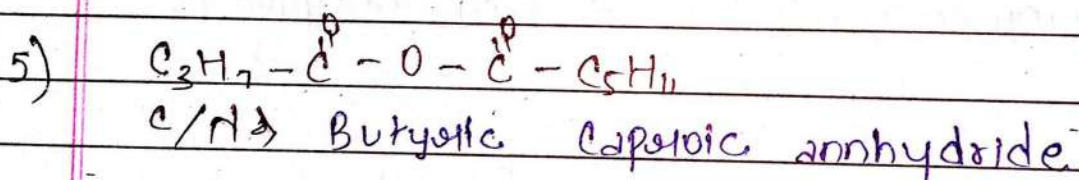 5) C₃H₇ - C(=O) - O - C(=O) - C₅H₁₁
C/N → Butyric Caproic annhydride